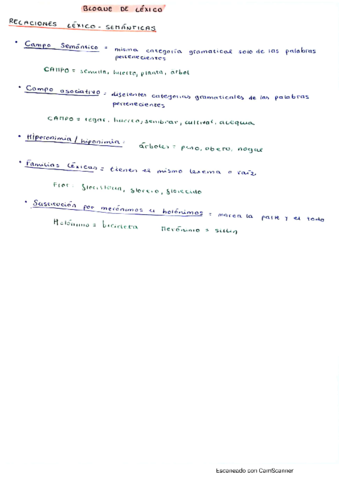 BLOQUE DE LÉXICO
RELACIONES LÉXICO - SEMÁNTICAS
• Campo Semántico = misma categoría gramatical solo de las palabras
pertenecientes
CAMPO = semilla, huerto, planta, árbol
• Campo asociativo = diferentes categorías gramaticales de las palabras
pertenecientes
CAMPO = regar, huerto, sembrar, cultivar, acequia
• Hiperonimia / hiponimia: árboles: pino, abeto, nogal
• Familias léxicas = tienen el mismo lexema o raíz
Flor: floristería, florero, florecido
• Sustitución por merónimos u holónimos = marca la parte y el todo
Holónimo = bicicleta Merónimo = sillín
Escaneado con CamScanner